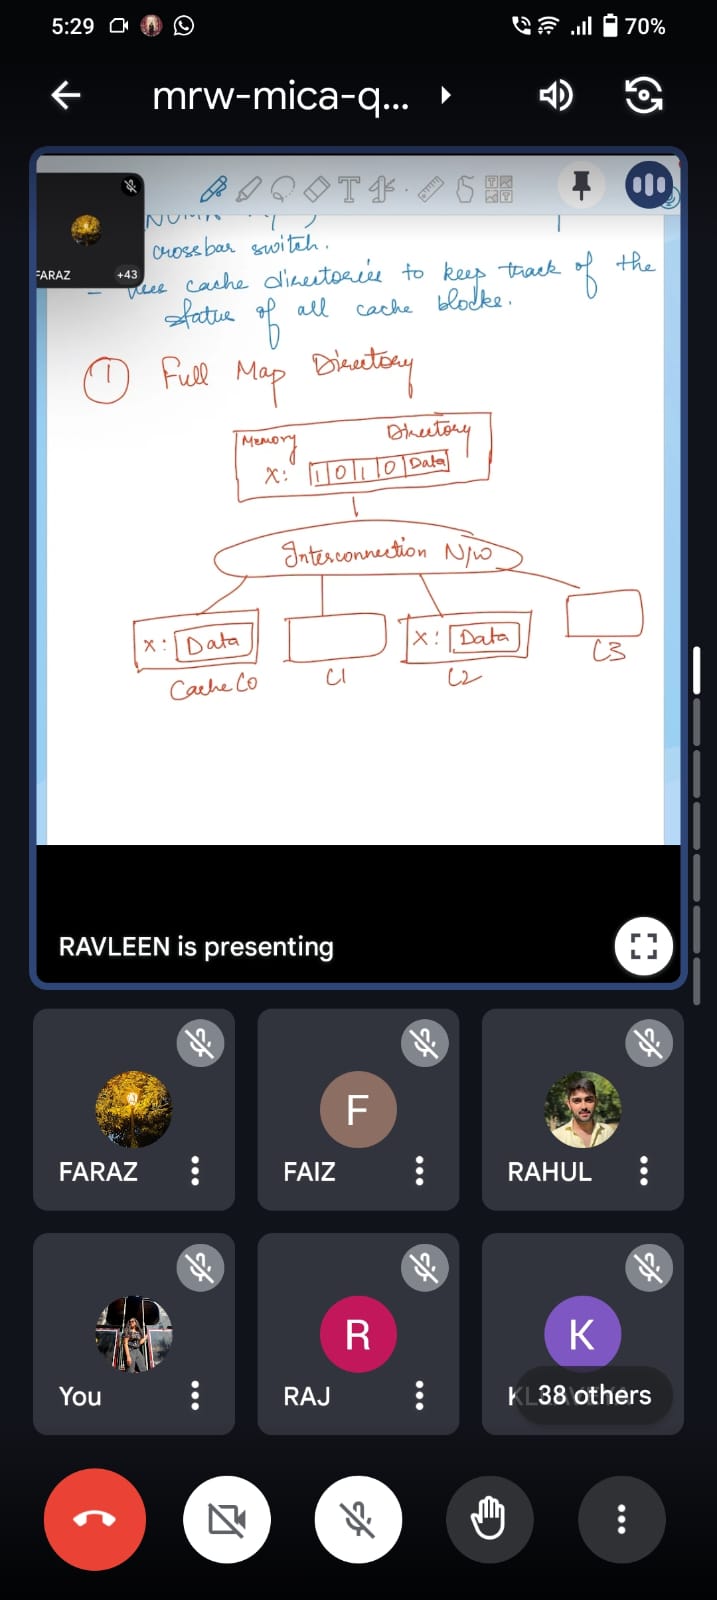 5:29
70%
mrw-mica-q...
T
FARAZ
+43
crossbar switch.
cache directories to keep track of the
status of all cache blocks.
1 Full Map Directory
Memory Directory
X: 1 0 1 0 Data
Interconnection N/w
X: Data
X: Data
Cache C0
C1
C2
C3
RAVLEEN is presenting
FARAZ
F
FAIZ
RAHUL
You
R
RAJ
K
38 others